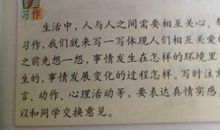 习作
生活中，人与人之间需要相互关心、
习作，我们就来写一写体现人们相互关爱的
之前先想一想，事情发生在怎样的环境里
生的，事情发展变化的过程怎样。写时注意
言、动作、心理活动等，要表达真情实感
以和同学交换意见。